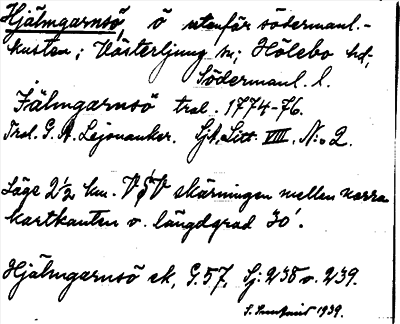 Hjälmgarnsö, ö utanför södermanl.-
kusten; Västerljung sn; Hölebo hd;
Södermanl. l.
Jälmgarnsö trol. 1774-76.
Trol. G. A. Lejonanker. Sjk. Litt. VIII. No 2.
Läge 2 1/2 km. V§V skärningen mellan norra
kartkanten o. längdgrad 30´.
Hjälmgarnsö ek, G. 57, Sj: 238 o. 239.
1939.